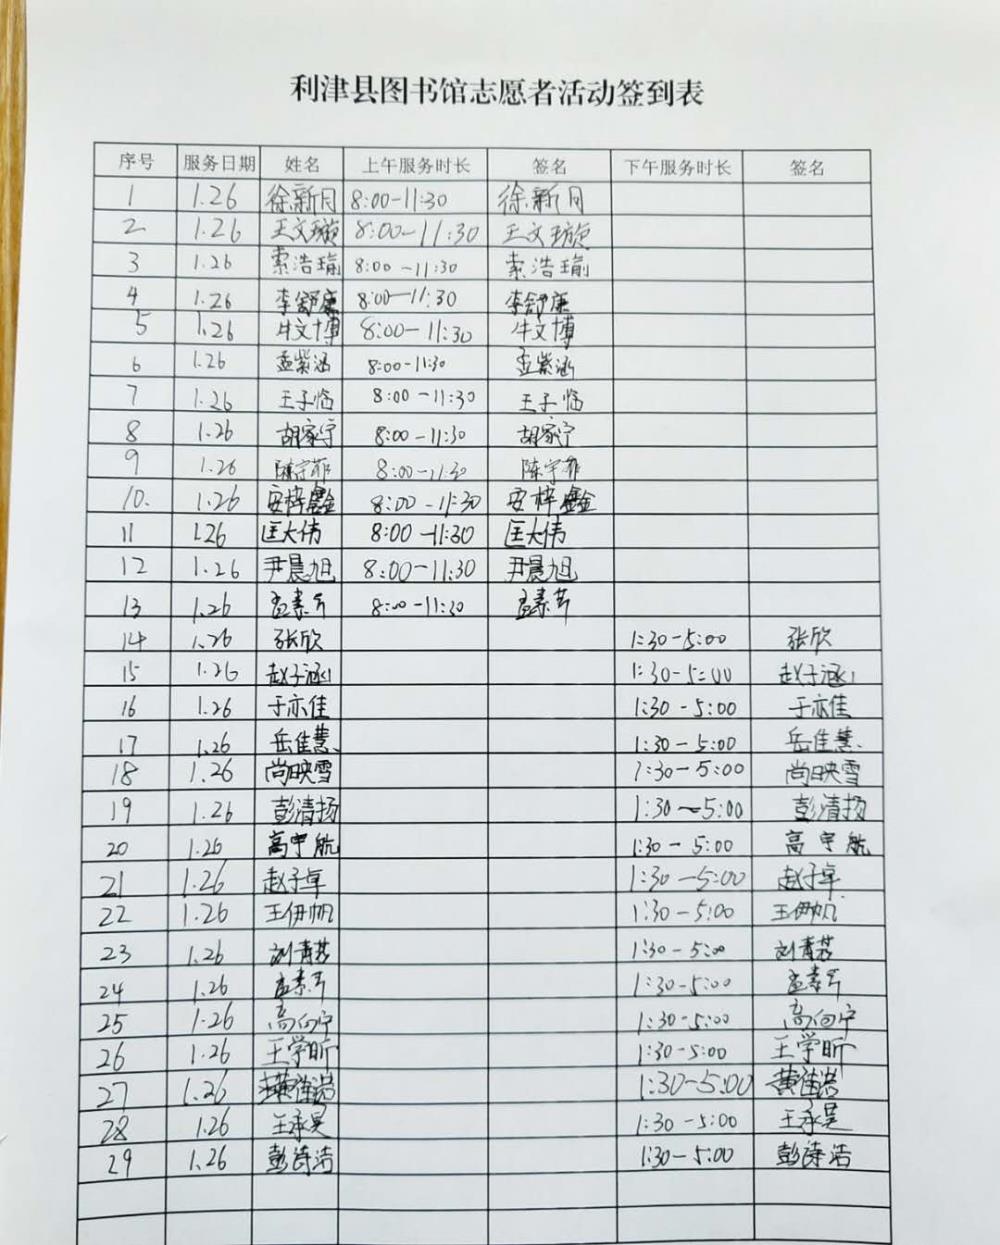 利津县图书馆志愿者活动签到表
序号 服务日期 姓名 上午服务时长 签名 下午服务时长 签名
1 1.26 徐新月 8:00-11:30 徐新月
2 1.26 王文璇 8:00-11:30 王文璇
3 1.26 索浩瑜 8:00-11:30 索浩瑜
4 1.26 李舒廉 8:00-11:30 李舒廉
5 1.26 牛文博 8:00-11:30 牛文博
6 1.26 孟紫涵 8:00-11:30 孟紫涵
7 1.26 王子临 8:00-11:30 王子临
8 1.26 胡家宁 8:00-11:30 胡家宁
9 1.26 陈宇菲 8:00-11:30 陈宇菲
10. 1.26 安梓鑫 8:00-11:30 安梓鑫
11 1.26 匡大伟 8:00-11:30 匡大伟
12 1.26 尹晨旭 8:00-11:30 尹晨旭
13 1.26 8:00-11:30
14 1.26 张欣 1:30-5:00 张欣
15 1.26 赵子涵 1:30-5:00 赵子涵
16 1.26 于亦佳 1:30-5:00 于亦佳
17 1.26 岳佳慧 1:30-5:00 岳佳慧
18 1.26 尚映雪 1:30-5:00 尚映雪
19 1.26 彭清扬 1:30~5:00 彭清扬
20 1.26 高宇航 1:30-5:00 高宇航
21 1.26 赵子卓 1:30-5:00 赵子卓
22 1.26 王伊帆 1:30-5:00 王伊帆
23 1.26 1:30-5:00
24 1.26 1:30-5:00
25 1.26 高向宁 1:30-5:00 高向宁
26 1.26 王学昕 1:30-5:00 王学昕
27 1.26 1:30-5:00
28 1.26 王承昊 1:30-5:00 王承昊
29 1.26 彭诗洁 1:30-5:00 彭诗洁